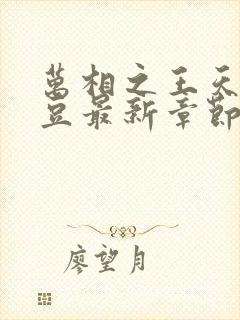 萬相之王天
豆最新章節
廖望月